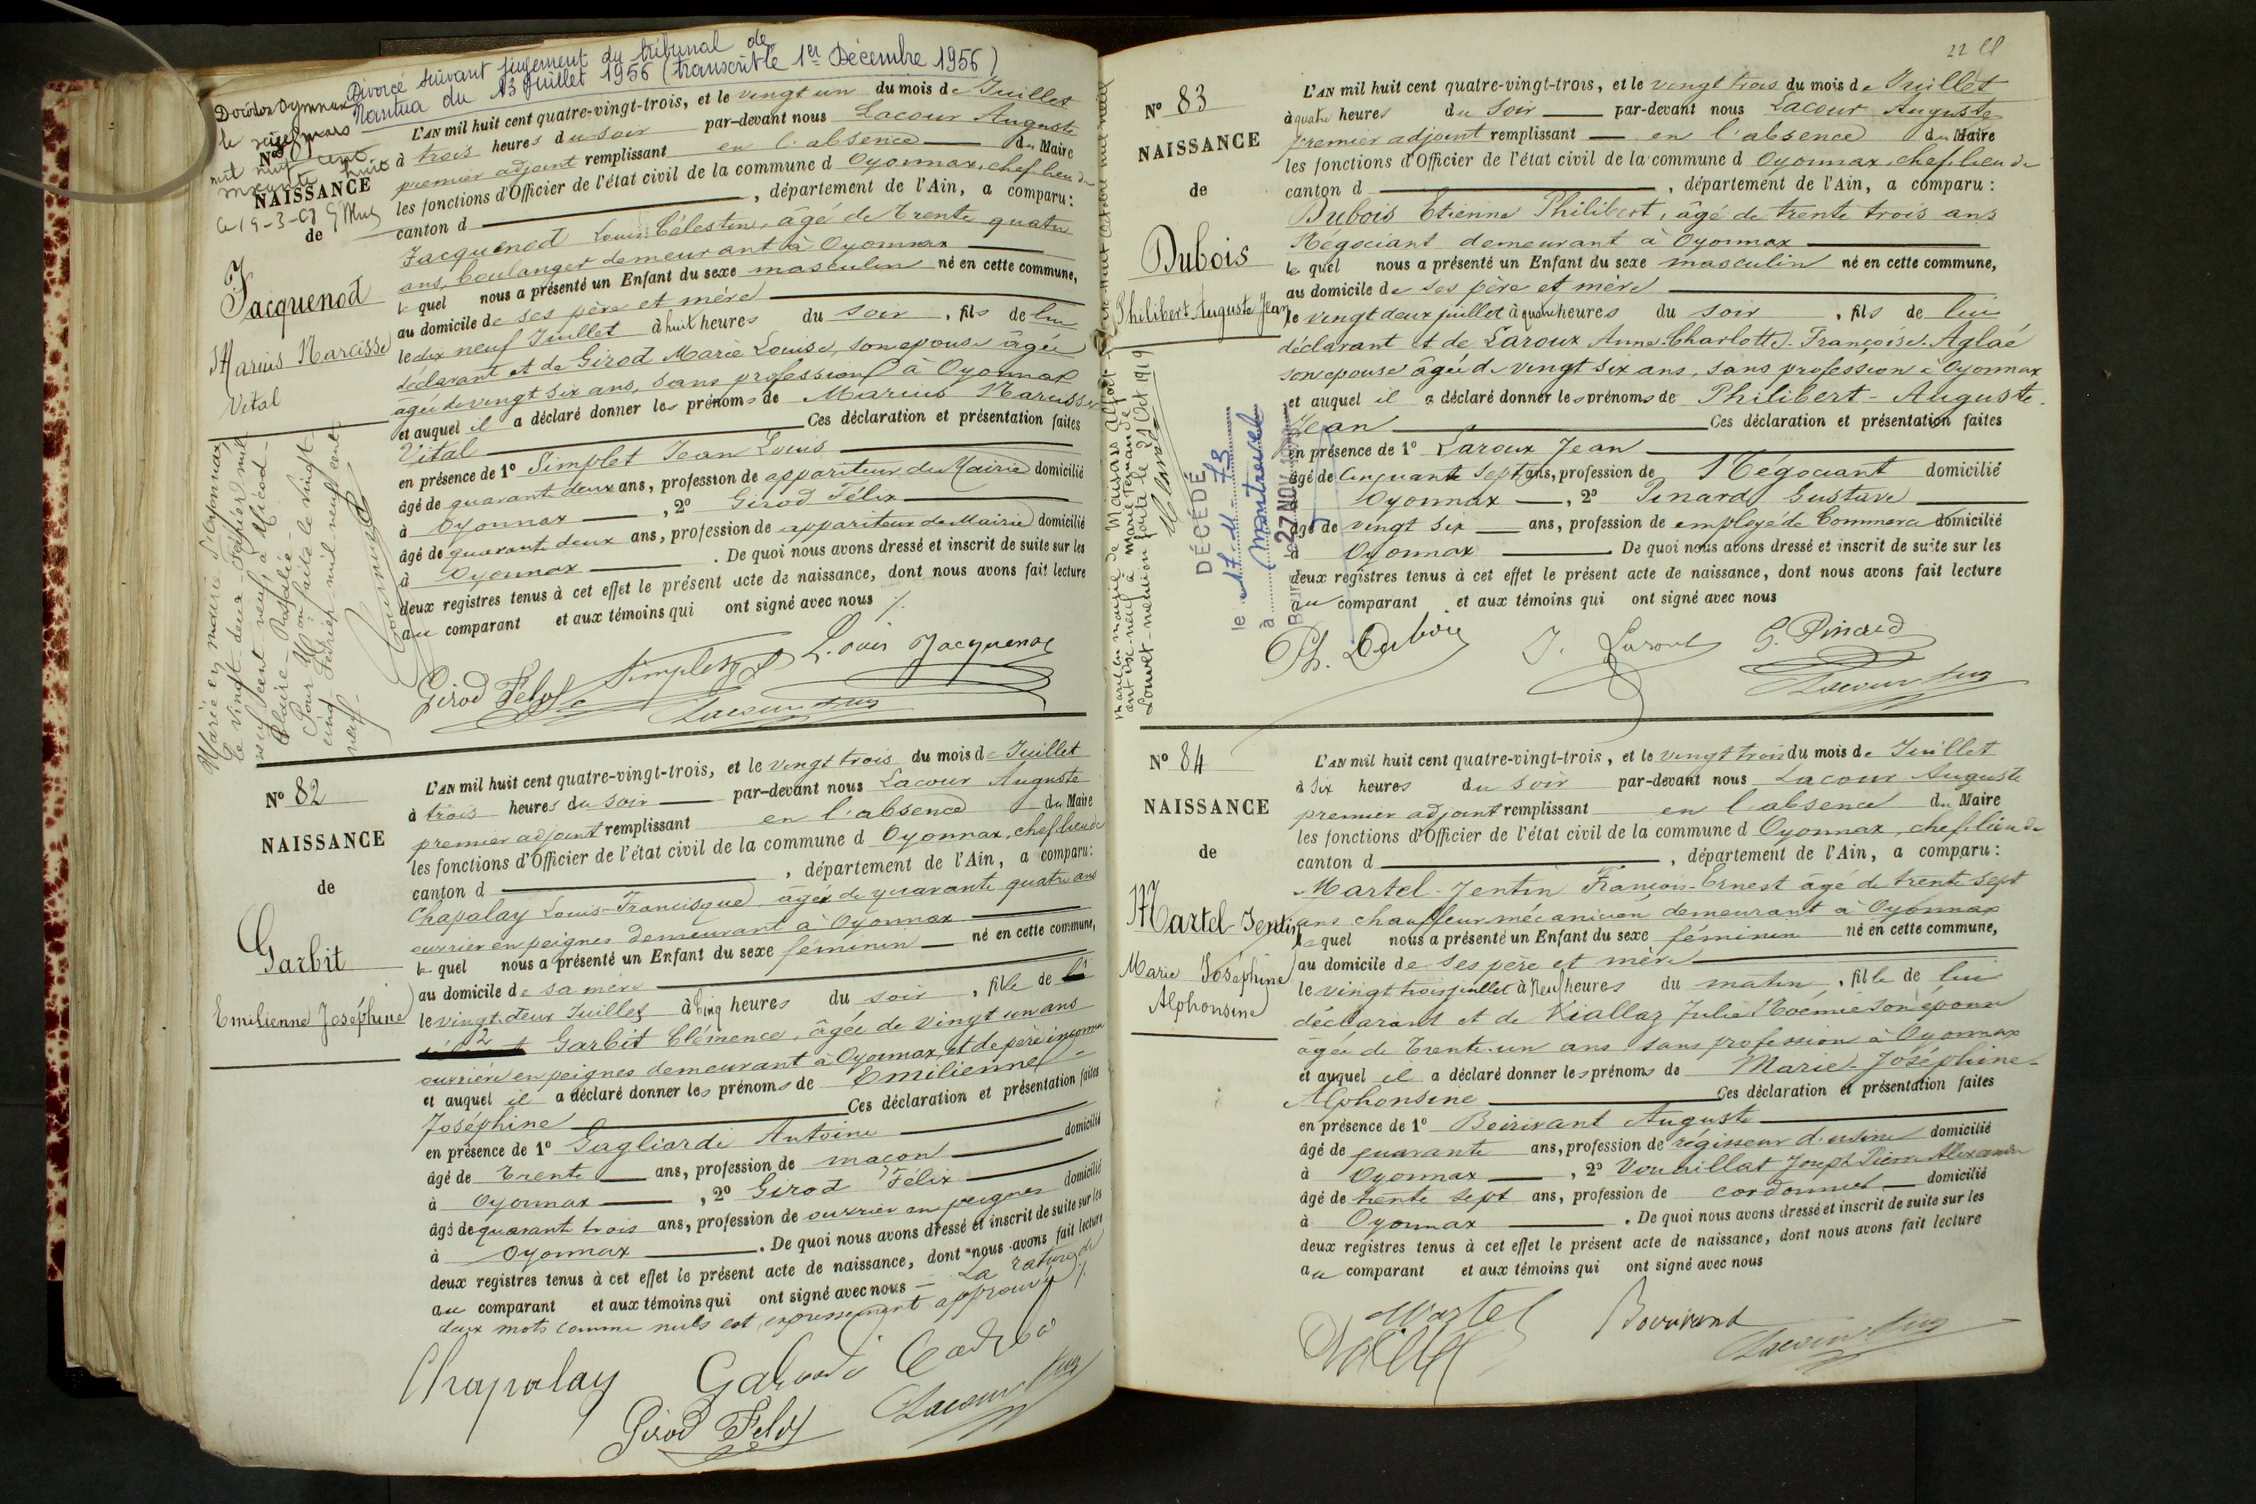 Divorcé suivant jugement du tribunal de
Nantua du 13 Juillet 1956 (transcrit le 1er Décembre 1956)
le
mil neuf cent
huit
NAISSANCE
de
Jacquenod
Marius Narcisse
Vital
L'AN mil huit cent quatre-vingt-trois, et le vingt un du mois de Juillet
à trois heures du soir par-devant nous Lacour Auguste
premier adjoint remplissant en l'absence du Maire
les fonctions d'Officier de l'état civil de la commune d Oyonnax, chef lieu de
canton d , département de l'Ain, a comparu:
Jacquenod Louis Célestin, âgé de trente quatre
ans, boulanger demeurant à Oyonnax
le quel nous a présenté un Enfant du sexe masculin né en cette commune,
au domicile de ses père et mère
le dix neuf Juillet à huit heures du soir, fils de lui
déclarant et de Girod Marie Louise, son epouse âgée
âgée de vingt six ans, sans profession à Oyonnax
et auquel il a déclaré donner les prénoms de Marius Narcisse
Vital Ces déclaration et présentation faites
en présence de 1° Simplet Jean Louis
âgé de quarant deux ans, profession de appariteur de Mairie domicilié
à Oyonnax , 2° Girod Félix
âgé de quarante deux ans, profession de appariteur de Mairie domicilié
à Oyonnax . De quoi nous avons dressé et inscrit de suite sur les
deux registres tenus à cet effet le présent acte de naissance, dont nous avons fait lecture
au comparant et aux témoins qui ont signé avec nous
Girod Felix Simplet L. ouis Jacquenod
Mariée en mairie d'Oyonnax
le vingt-deux Février mil
neuf cent neuf, à Micod
Claire-Rosalie
Pour Mon faite le vingt-
cinq Février mil neuf cent
neuf
N° 82
NAISSANCE
de
Garbit
Emilienne Joséphine
L'AN mil huit cent quatre-vingt-trois, et le vingt trois du mois de Juillet
à trois heures du soir par-devant nous Lacour Auguste
premier adjoint remplissant en l'absence du Maire
les fonctions d'Officier de l'état civil de la commune d Oyonnax, chef lieu de
canton d , département de l'Ain, a comparu:
Chapalay Louis-Francisque, âgé de quarante quatre ans
ouvrier en peignes demeurant à Oyonnax
le quel nous a présenté un Enfant du sexe féminin né en cette commune,
au domicile de sa mère
le vingt-deux Juillet à cinq heures du soir, fille de
Garbit Clémence, âgée de vingt un ans
ouvrière en peignes demeurant à Oyonnax, et de père inconnu
et auquel il a déclaré donner les prénoms de Emilienne-
Joséphine Ces déclaration et présentation faites
en présence de 1° Gagliardi Antoine
âgé de trente ans, profession de maçon domicilié
à Oyonnax , 2° Girod Félix
âgé de quarant trois ans, profession de ouvrier en peignes domicilié
à Oyonnax . De quoi nous avons dressé et inscrit de suite sur les
deux registres tenus à cet effet le présent acte de naissance, dont nous avons fait lecture
au comparant et aux témoins qui ont signé avec nous - La rature de
deux mots comme nuls est expressement approuvé
Chapalay
Girod Felix
22
N° 83
NAISSANCE
de
Dubois
Philibert Auguste Jean
L'AN mil huit cent quatre-vingt-trois, et le vingt trois du mois de Juillet
à quatre heures du soir par-devant nous Lacour Auguste
premier adjoint remplissant en l'absence du Maire
les fonctions d'Officier de l'état civil de la commune d Oyonnax, chef-lieu de
canton d , département de l'Ain, a comparu:
Dubois Etienne Philibert, âgé de trente trois ans
Négociant demeurant à Oyonnax
le quel nous a présenté un Enfant du sexe masculin né en cette commune,
au domicile de ses père et mère
le vingt deux juillet à quatre heures du soir, fils de lui
déclarant et de Laroux Anne-Charlotte-Françoise-Aglaé
son epouse âgée de vingt six ans, sans profession à Oyonnax
et auquel il a déclaré donner les prénoms de Philibert-Auguste-
Jean Ces déclaration et présentation faites
en présence de 1° Laroux Jean
âgé de Cinquante sept ans, profession de Négociant domicilié
Oyonnax , 2° Pinard Gustave
âgé de vingt six ans, profession de employé de Commerce domicilié
à Oyonnax . De quoi nous avons dressé et inscrit de suite sur les
deux registres tenus à cet effet le présent acte de naissance, dont nous avons fait lecture
au comparant et aux témoins qui ont signé avec nous
Ph. Dubois J. Laroux G. Pinard
DÉCÉDÉ
le 17-11-73
à Montrevel
27 NOV
Marié en mairie de Maisons Alfort
N° 84
NAISSANCE
de
Martel-Jentin
Marie Joséphine
Alphonsine
L'AN mil huit cent quatre-vingt-trois, et le vingt trois du mois de Juillet
à six heures du soir par-devant nous Lacour Auguste
premier adjoint remplissant en l'absence du Maire
les fonctions d'Officier de l'état civil de la commune d Oyonnax, chef-lieu de
canton d , département de l'Ain, a comparu:
Martel-Jentin François-Ernest âgé de trente sept
ans chauffeur-mécanicien, demeurant à Oyonnax
le quel nous a présenté un Enfant du sexe féminin né en cette commune,
au domicile de ses père et mère
le vingt trois juillet à Neuf heures du matin, fille de lui
déclarant et de Viallaz Julie Noémie son épouse
âgée de trente-un ans sans profession à Oyonnax
et auquel il a déclaré donner les prénoms de Marie-Joséphine-
Alphonsine Ces déclaration et présentation faites
en présence de 1° Boirivant Auguste
âgé de quarante ans, profession de régisseur d'usine domicilié
à Oyonnax , 2° Vouaillat Joseph Pierre Alexandre
âgé de trente sept ans, profession de cordonnier domicilié
à Oyonnax . De quoi nous avons dressé et inscrit de suite sur les
deux registres tenus à cet effet le présent acte de naissance, dont nous avons fait lecture
au comparant et aux témoins qui ont signé avec nous
Martel Boirivant